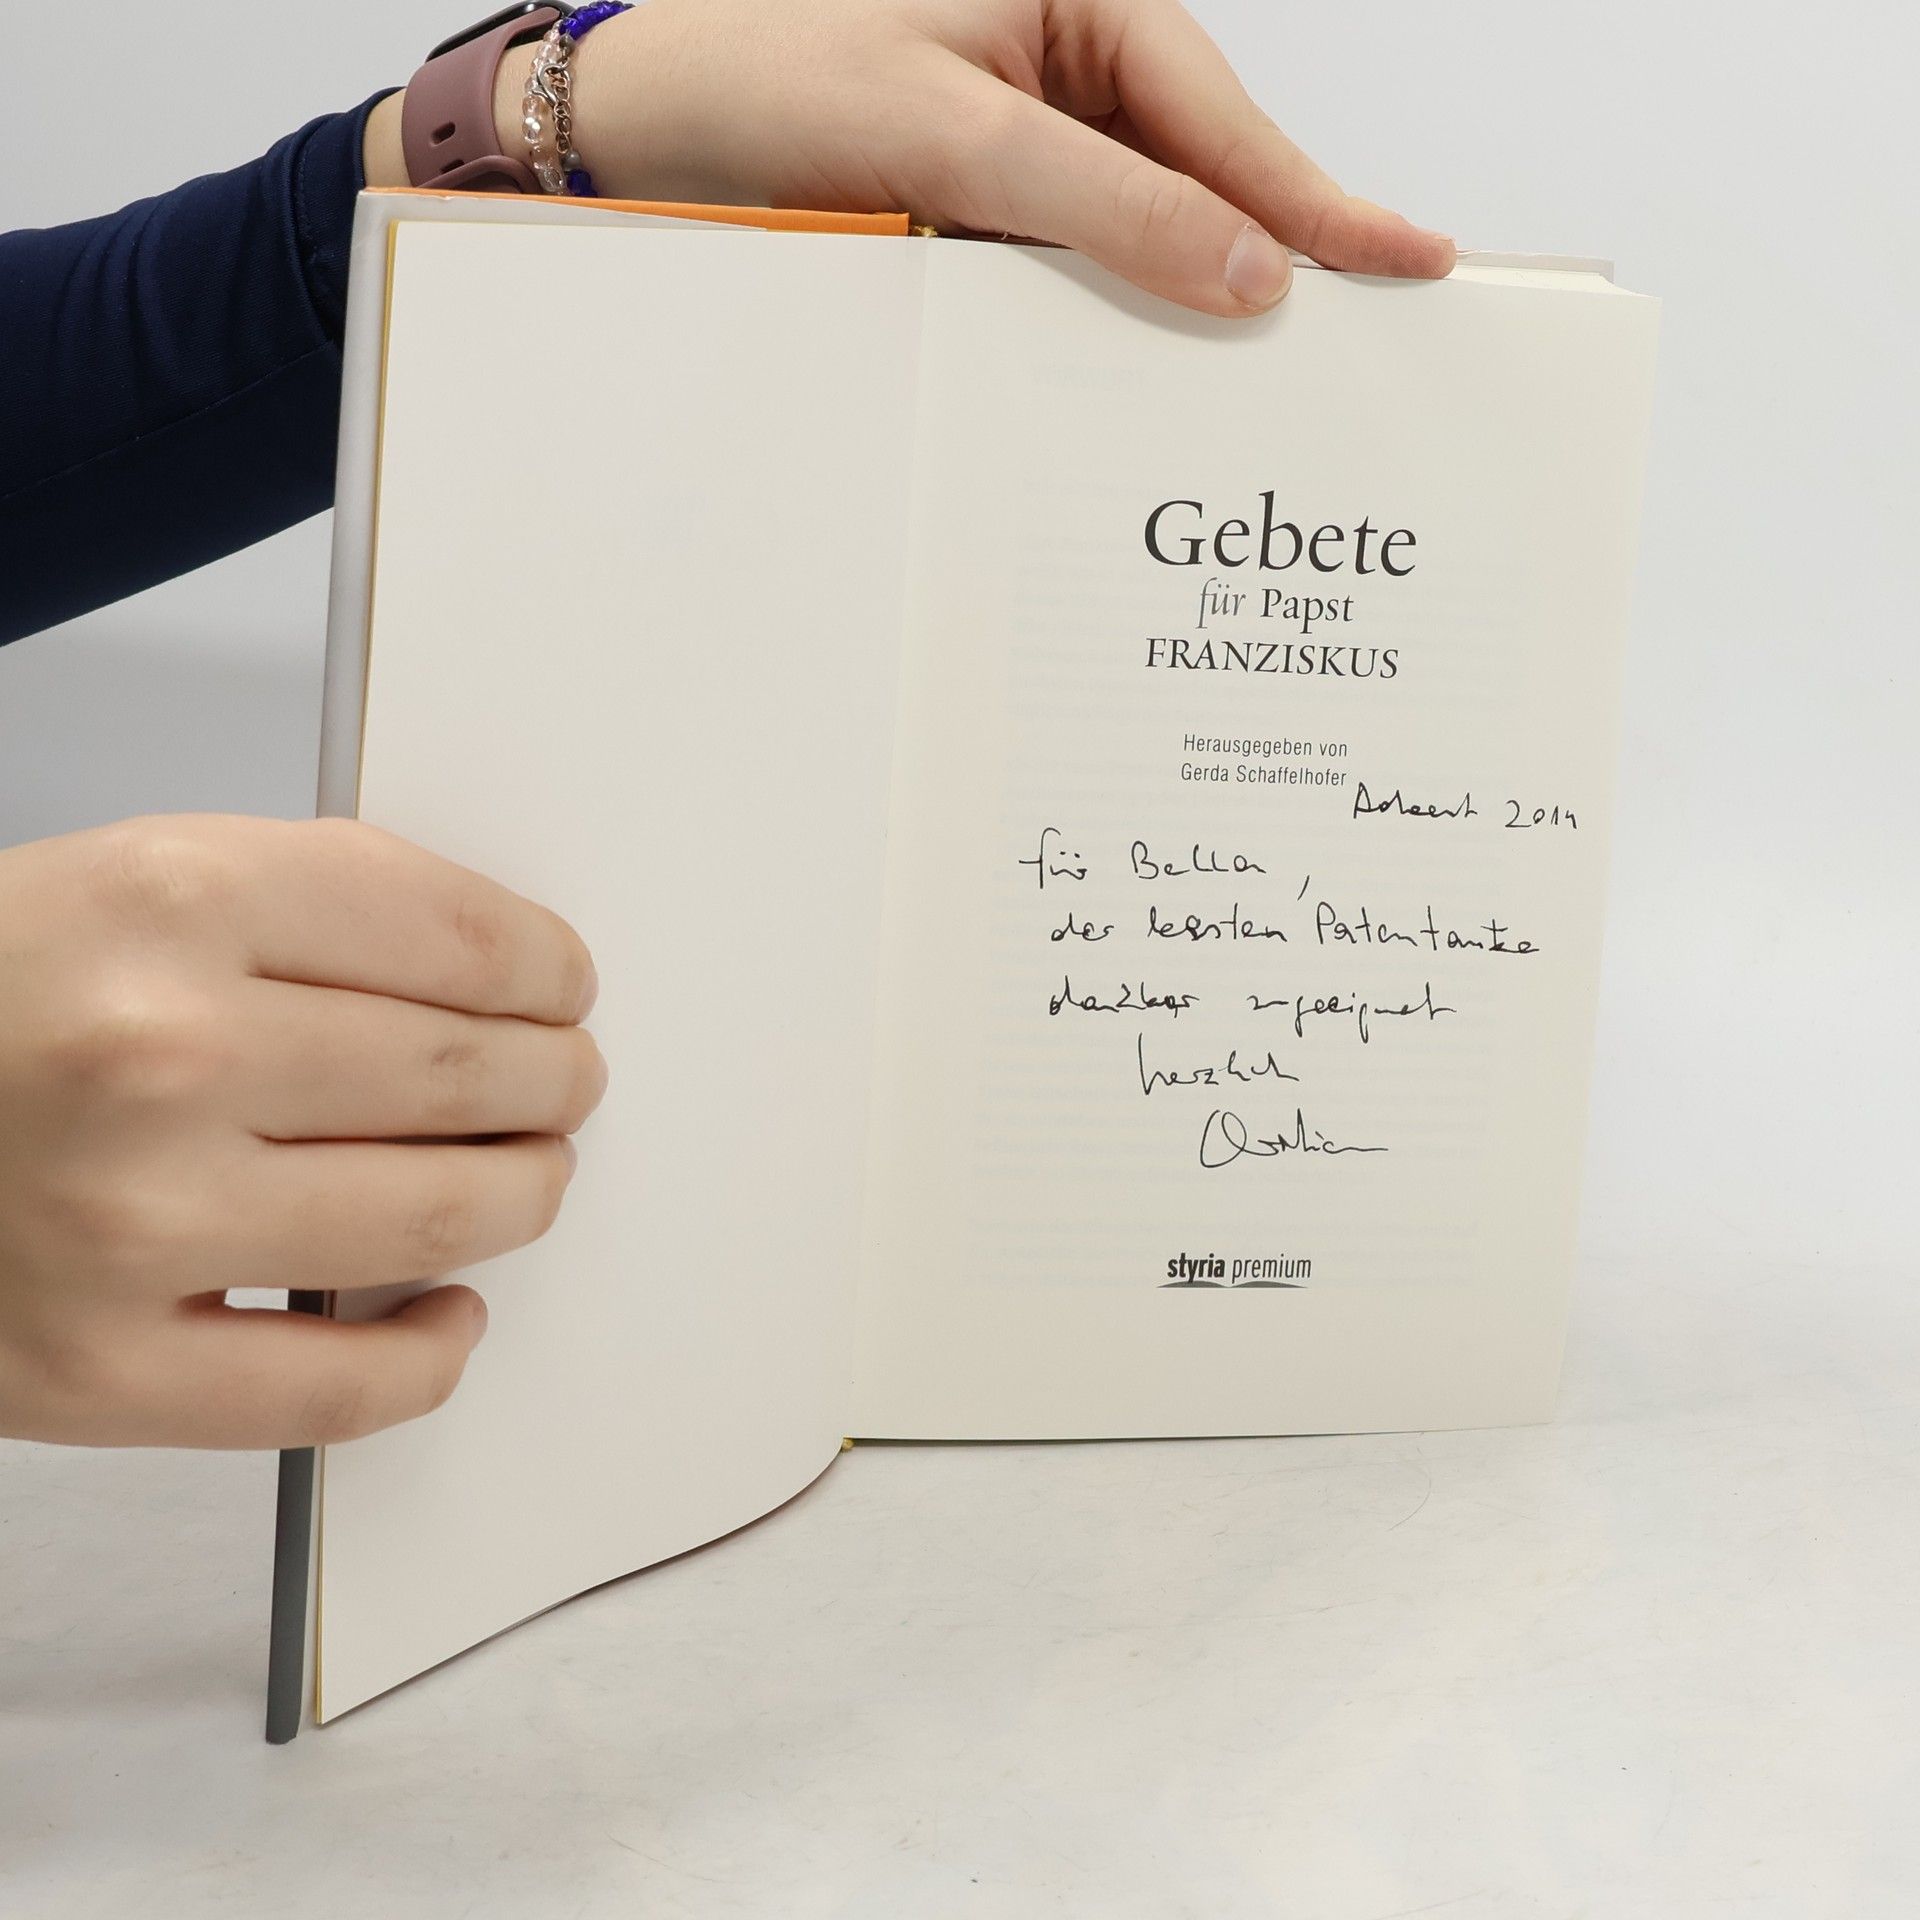 Gebete
für Papst
FRANZISKUS
Herausgegeben von
Gerda Schaffelhofer
Advent 2014
für Bella,
der besten Patentante
dankbar zugeeignet
herzlich
styria premium